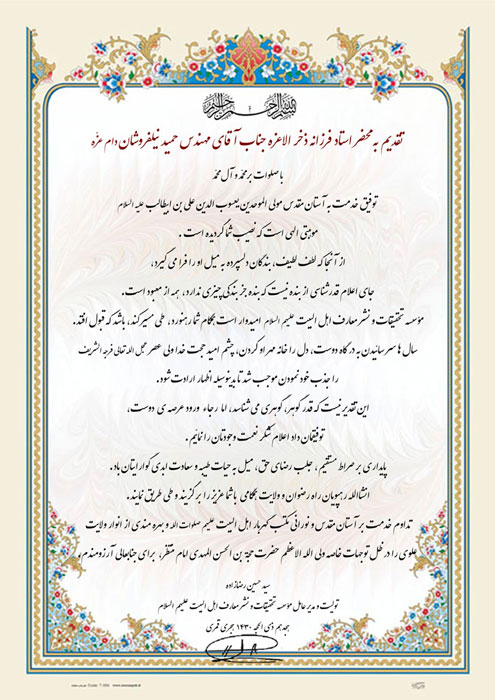 بسم الله الرحمن الرحیم
تقدیم به محضر استاد فرزانه ذخر الاعزه جناب آقای مهندس حمید نیلفروشان دام عزه
با صلوات بر محمد و آل محمد
توفیق خدمت به آستان مقدس مولی الموحدین یعسوب الدین علی بن ابیطالب علیه السلام
موهبتی الهی است که نصیب شما گردیده است .
از آنجا که لطف لطیف، بندگان دلسپرده به میل او را فرا می گیرد،
جای اعلام قدرشناسی از بنده نیست که بنده جز بندگی چیزی ندارد، همه از معبود است .
مؤسسه تحقیقات و نشر معارف اهل البیت علیهم السلام امیدوار است بهگام شما رهنورد، طی مسیر کند، باشد که قبول افتد .
سال ها سر سائیدن به درگاه دوست، دل را خانه مهر او کردن، چشم امید حجت خدا ولی عصر عجل الله تعالی فرجه الشریف
را جذب خود نمودن موجب شد تا بدینوسیله اظهار ارادت شود .
این تقدیر نیست که قدر گوهر، گوهری می شناسد، اما رجاء ورود عرصه ی دوست،
توفیقمان داد اعلام شکر نعمت وجودتان را نمایم .
پایداری بر صراط مستقیم ، جلب رضای حق، میل به حیات طیبه و سعادت ابدی گوارایتان باد .
انشاالله رهپویان راه رضوان و ولایت همگامی با شما عزیز را برگزیند و طی طریق نمایند .
تداوم خدمت بر آستان مقدس و نورانی مکتب گهربار اهل البیت علیهم صلوات الله و بهره مندی از انوار ولایت
علوی را در ظل توجهات خاصه ولی الله الاعظم حضرت حجة بن الحسن المهدی امام منتظر، برای جنابعالی آرزومندم .
سید حسین رضازاده
تولیت و مدیر عامل مؤسسه تحقیقات و نشر معارف اهل البیت علیهم السلام
هجدهم ذی الحجه ۱۴۳۰ هجری قمری